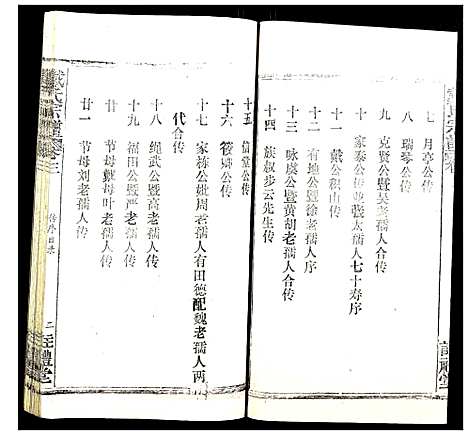 七 月亭公传
八 瑞琴公传
九 克贤公暨吴老孺人合传
十 家泰公传並張太孺人七十寿序
十一 戴公积山传
十二 有地公暨徐老孺人序
十三 咏虞公暨黄胡老孺人合传
十四 族叔步云先生传
十五 信堂公传
十六 筱嫏公传
十七 家栋公妣周老孺人有田德配魏老孺人两
代合传
十八 绳武公暨高老孺人传
十九 福田公暨严老孺人传
廿 节母戴母叶老孺人传
廿一 节母刘老孺人传
戴氏宗譜卷三
传序目录
二
註禮堂